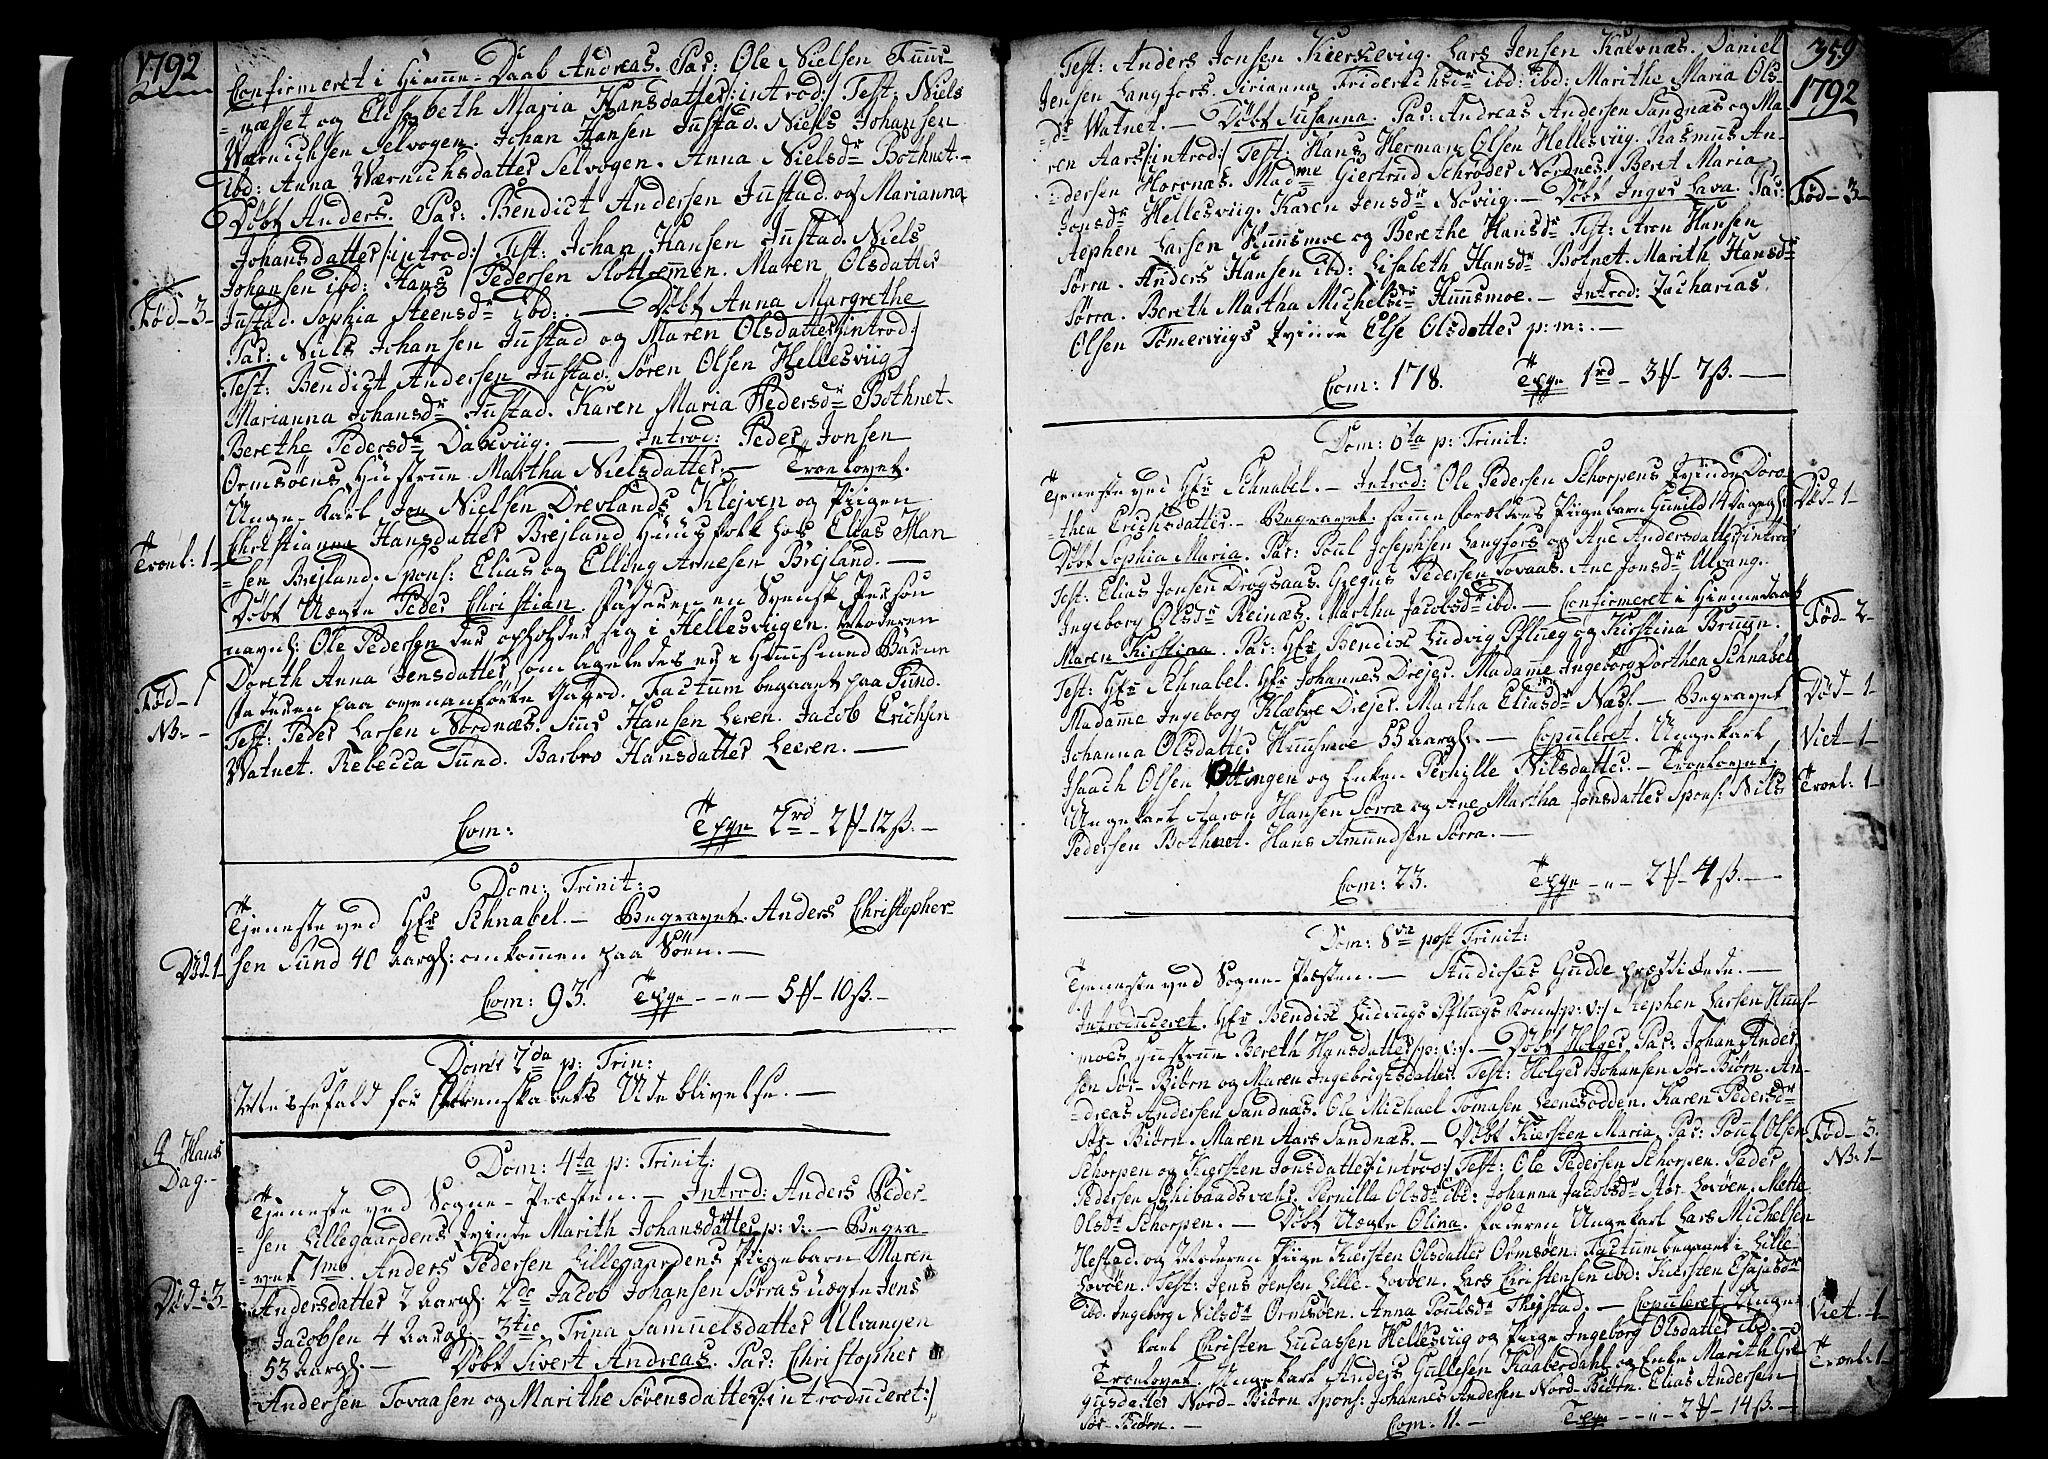 1792
Confirmeret i Hiemme-Daab Andreas. Par: Ole Nielsen
næsset og Elisabeth Maria Hansdatter /:introd:/ Test: Niels
Wærnichsen Selvogen. Johan Hansen Justad. Niels Johansen
ibd: Anna Wærnichsdatter Selvogen. Anna Nielsdr Bothnet.-
Døbt Anders. Par: Bendict Andersen Justad og Marianna
Johansdatter /:introd:/ Test: Johan Hansen Justad. Niels
Johansen ibd: Hans Pedersen Maren Olsdatter
Fød-3-
Justad. Sophia Steensdr ibd:. — Døbt Anna Margrethe
Par: Niels Johansen Justad og Maren Olsdatter /:introd:/
Test: Bendict Andersen Justad. Søren Olsen Hellesviig
Marianna Johansdr Justad. Karen Maria Pedersdr Bothnet.
Berethe Pedersdr — Introd: Peder Jonsen
Ormsöens Hustrue Martha Nielsdatter. — Troelovet.
Unge Karl Jon Nielsen Drevlands Klejven og Piigen
Christianna Hansdatter Brejland Huusfolk hos Elias Han
Troel: 1-
sen Brejland. Spons: Elias og Elling Arnesen Brejland. —
Døbt Uægte Peder Christian. Faderen en Svensk Person
navnl: Ole Pedersen der opholder sig i Hellesviigen. Moderen
Doreth Anna Jensdatter som ligeledes er i Huus med Barne
Fød-1
NB-
faderen paa ovenanførte Gaard. Factum begaaet paa Sund.
Test: Peder Larsen Nordnæs. Hansen Leren. Jacob Erichsen
Watnet. Rebecca Sund. Barbro Hansdatter Leeren. —
Com: Tafle 2rd-2#-12ß.-
Dom: Trinit:
Tjeneste ved Hr Schnabel. — Begravet. Anders Christopher-
Død 1-
sen Sund 40 aargl: omkommen paa Søen. —
Com: 93. Tafle - " - 5#-10ß.-
Dom: 2da p: Trin:
Messefald for Udeblivelse. —
Hans
Dag.-
Dom: 4ta p: Trinit:
Tjeneste ved Sogne-Præsten. — Introd: Anders Peder-
sen Lillegaardens Qvinde Marith Johansdatter p: v: — Begra-
vet 1mo. Anders Pedersen Lillegaardens Piigebarn Maren
Død: 3-
Andersdatter 2 aargl: 2do Jacob Johansen Sørras uægte Jens
Jacobsen 4 aargl: 3tio Trina Samuelsdatter Ulvangen
53 aargl. — Døbt Sivert Andreas. Par: Christopher
Andersen Tovaasen og Marithe Sørensdatter /:introduceret:/
359
1792
Test: Anders Jonsen Lars Jensen Kalvnæs. Daniel
Jensen Langfors. Friderichsdr ibd: ibd: Marithe Maria Ols-
dr Watnet. — Døbt Susanna. Par: Andreas Andersen Sandnæs og Ma-
ren Aars /:introd:/ Test: Hans Herman Olsen Hellesviig. Rasmus An-
dersen Hornæs. Madme Giertrud Schrøder Nordnæs. Beret Maria
Jonsdr Hellesviig. Karen Jensdr — Døbt Inger Lava. Par:
Fød-3-
Stephen Larsen Huusmoe og Berethe Hansdr Test: Aron Hansen
Sørra. Anders Hansen ibd: Lisabeth Hansdr Botnet. Marith Hansdr
Sørra. Bereth Martha Michelsdr Huusmoe. — Introd: Zacharias
Olsen Tømerviigs Qvinde Else Olsdatter p:m:.—
Com: 178. Tafle 1rd-3#-7ß.—
Dom: 6ta p: Trinit:
Tjeneste ved Hr Schnabel. — Introd: Ole Pedersen Schorpens Qvinde Doro-
thea Erichsdatter. — Begravet: samme forældres Piigebarn Gunild 14 Dage gl:
Død-1-
Døbt Sophia Maria. Par: Poul Josephsen Langfors og Ane Andersdatter /:introd:
Test: Elias Jonsen Drogsaas. Pedersen Tovaas. Ane Jonsdr Ulvang.
Ingeborg Olsdr Reinæs. Martha Jacobsdr ibd. — Confirmeret i Hiemmedaab
Fød-2-
Maren Kirstina. Par: Hr Bendix Ludvig Pflueg og Kirstina Bruun.
Test: Hr Schnabel. Hr Johannes Drejer. Madamme Ingeborg Dorthea Schnabel
Madamme Ingeborg Klæboe Drejer. Martha Eliasdr Næs. — Begravet
Død-1-
Johanna Olsdatter Huusmoe 55 aargl. — Copuleret. Ungekarl
Viet-1-
Isaach Olsen og Enken Pernille Nilsdatter. — Troelovet.
Ungekarl Aaron Hansen Sørra og Ane Martha Jonsdatter Spons: Nils
Troel: 1-
Pedersen Bothnet. Hans Amundsen Sørra. —
Com: 23. Tafle - " - 2#-4ß.—
Dom: 8va post Trinit:
Tjeneste ved Sogne-Præsten. — Studiosus Gudde prædikede. —
Introduceret. Hr Bendix Ludvigs Pflugs Kone /:p:v:/ Stephen Larsen Huus-
moes Hustrue Bereth Hansdatter /:p:v:/. — Døbt Holger Par: Johan Ander
sen Sør-Biørn og Maren Ingebrigtsdatter. Test: Holger Johansen Sør-Biørn. An-
dreas Andersen Sandnæs. Ole Michael Tomasen Leenesodden. Karen Pedersdr
Sør-Biørn. Maren Aars Sandnæs. — Døbt Kiersten Maria. Par: Poul Olsen
Fød-3.
NB-1-
Schorpen og Kiersten Jonsdatter /:introd:/ Test: Ole Pedersen Schorpen. Peder
Pedersen Pernilla Olsdr ibd: Johanna Jacobsdr Mette
Olsdr Schorpen. — Døbt Uægte Olina. Faderen Ungekarl Lars Michelsen
Hestad. og Moderen Piige Kiersten Olsdatter Ormsøen. Factum begaaet i Lille
Lovøen. Test: Jens Jensen Lille-Lovøen. Lars Christensen ibd: Kiersten Esajasdr
ibd. Ingeborg Nilsdr Ormsøen. Anna Poulsdr — Copuleret. Unge
Viet-1-
karl Christen Lucassen Hellesviig og Piige Ingeborg Olsdatter ibd: —
Troelovet. Ungekarl Anders Gullesen Kaaberdahl og Enke Marith Gre
Troel: 1-
gusdatter Nord-Biørn Spons: Johannes Andersen Nord-Biørn. Elias Andersen
Sør-Biørn. — Com: 11. - Tafle - " - 2#-14ß.-